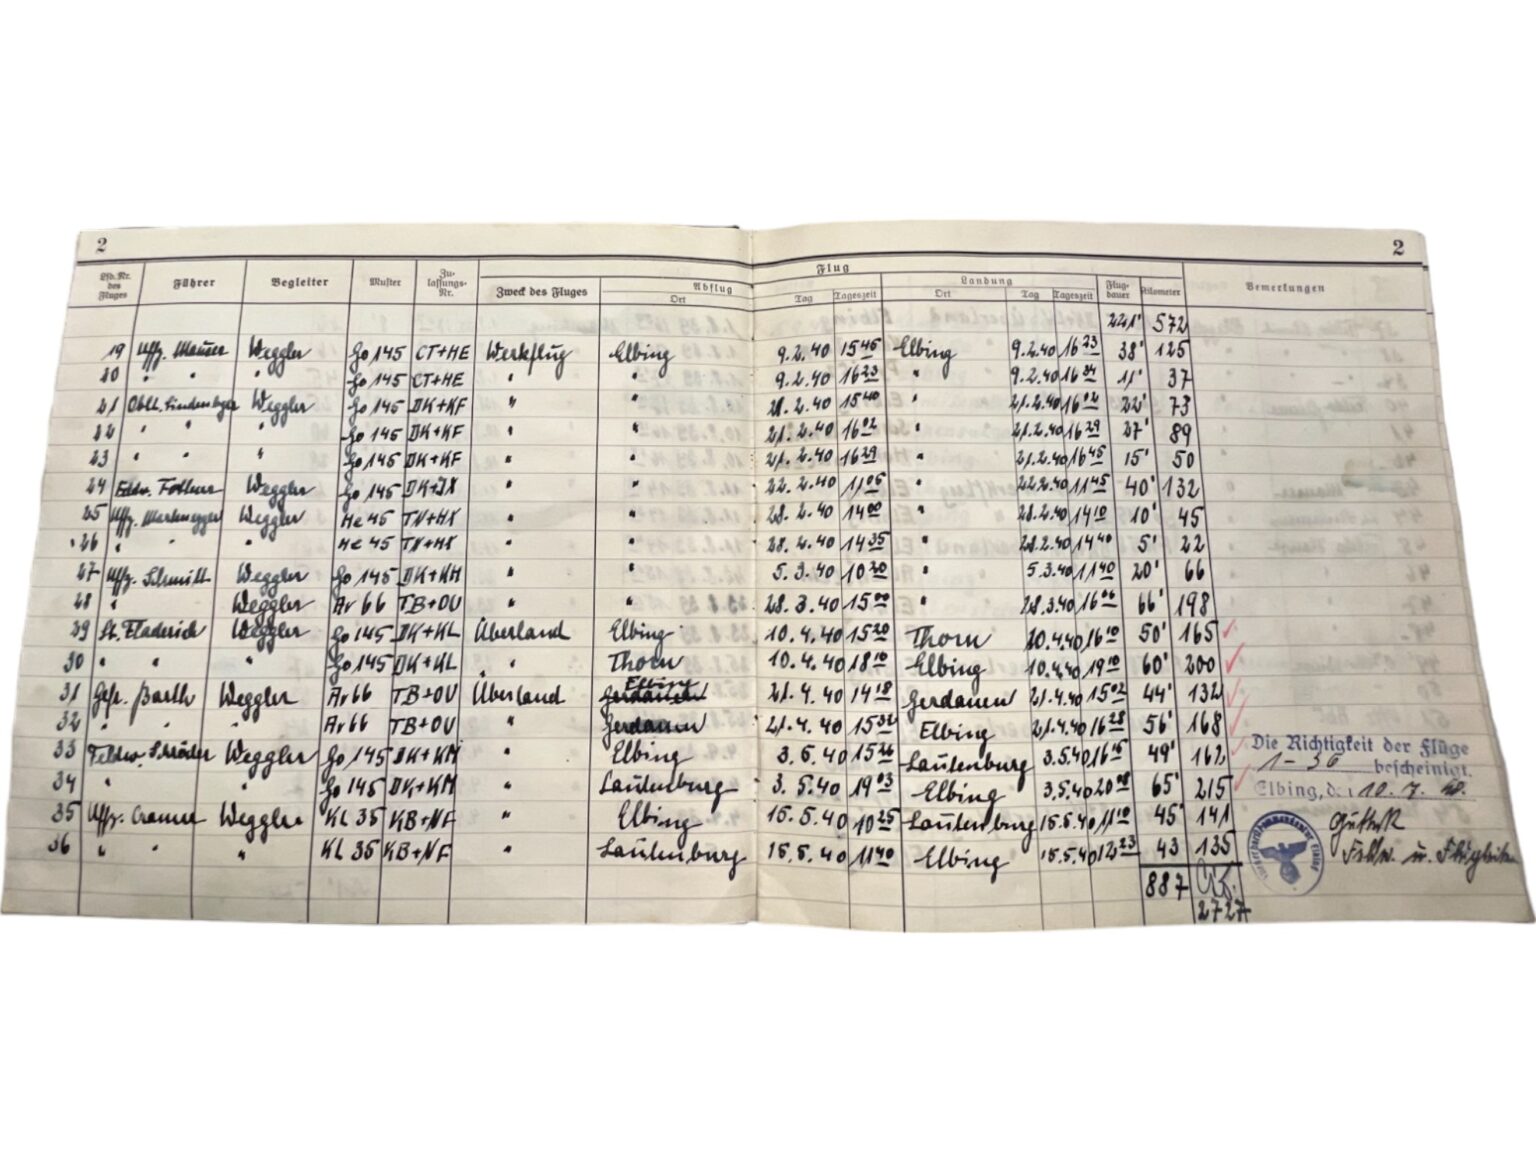 2 2
Lfd. Nr. des Fluges Führer Begleiter Muster Zulassungs-Nr. Flug Bemerkungen
Zweck des Fluges Abflug Landung Flugdauer Kilometer
Ort Tag Tageszeit Ort Tag Tageszeit
221' 572
19 Uffz. Mauser Weggler Go 145 CT+HE Werkflug Elbing 9.2.40 15 45 Elbing 9.2.40 16 23 38' 125
20 " " " Go 145 CT+HE " " 9.2.40 16 23 " 9.2.40 16 34 11' 37
21 Oblt. Lindenberger Weggler Go 145 DK+KF " " 21.2.40 15 40 " 21.2.40 16 02 22' 73
22 " " " Go 145 DK+KF " " 21.2.40 16 02 " 21.2.40 16 29 27' 89
23 " " " Go 145 DK+KF " " 21.2.40 16 29 " 21.2.40 16 45 15' 50
24 Feldw. Weggler Go 145 DK+JX " " 22.2.40 11 05 " 22.2.40 11 45 40' 132
25 Uffz. Weggler He 45 TV+HX " " 28.2.40 14 00 " 28.2.40 14 10 10' 45
26 " " He 45 TV+HX " " 28.2.40 14 35 " 28.2.40 14 40 5' 22
27 Uffz. Schmitt Weggler Go 145 DK+KM " " 5.3.40 10 20 " 5.3.40 11 40 20' 66
28 " Weggler Ar 66 TB+OU " " 28.3.40 15 00 " 28.3.40 16 06 66' 198
29 Lt. Fladerich Weggler Go 145 DK+KL Überland Elbing 10.4.40 15 20 Thorn 10.4.40 16 10 50' 165
30 " " " Go 145 DK+KL " Thorn 10.4.40 18 10 Elbing 10.4.40 19 10 60' 200
31 Gefr. Barth Weggler Ar 66 TB+OU Überland Gerdauen Elbing 21.4.40 14 18 Gerdauen 21.4.40 15 02 44' 132
32 " " Ar 66 TB+OU " Gerdauen 21.4.40 15 32 Elbing 21.4.40 16 28 56' 168
33 Feldw. Schröder Weggler Go 145 DK+KM " Elbing 3.5.40 15 26 Lautenburg 3.5.40 16 15 49' 162
34 " " Go 145 DK+KM " Lautenburg 3.5.40 19 03 Elbing 3.5.40 20 08 65' 215
35 Uffz. Cramer Weggler KL 35 KB+NF " Elbing 15.5.40 10 25 Lautenburg 15.5.40 11 10 45' 141
36 " " KL 35 KB+NF " Lautenburg 15.5.40 11 40 Elbing 15.5.40 12 23 43 135
887 2727
Die Richtigkeit der Flüge
1 - 36 bescheinigt.
Elbing, d. 10.7.40.
Feldw. u.